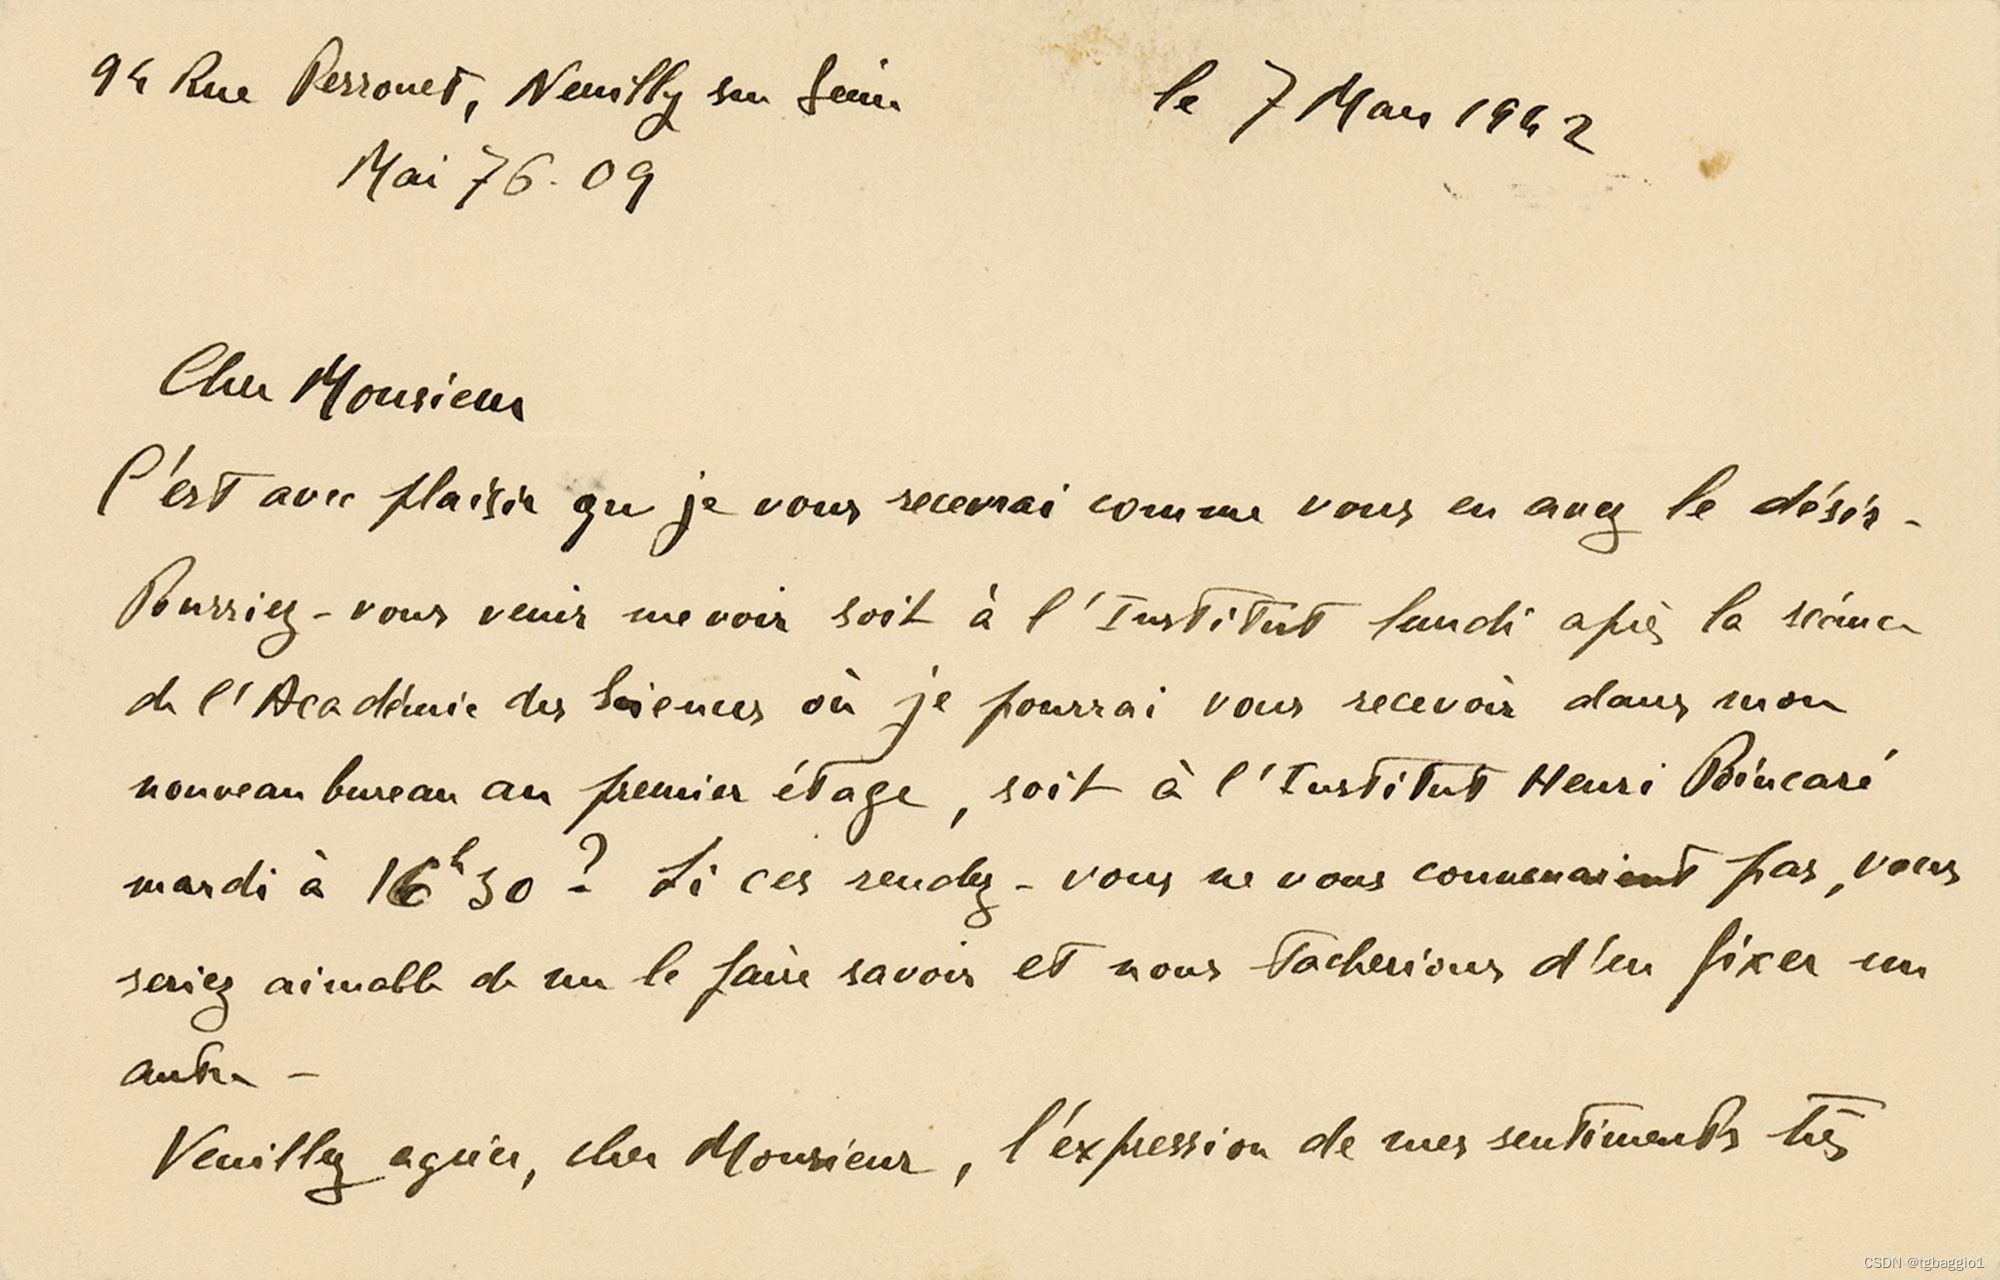 94 Rue Perronet, Neuilly sur Seine
le 7 Mars 1942
Mai 76.09
Cher Monsieur
C'est avec plaisir que je vous recevrai comme vous en avez le désir -
Pourriez-vous venir me voir soit à l'Institut lundi après la séance
de l'Académie des Sciences où je pourrai vous recevoir dans mon
nouveau bureau au premier étage, soit à l'Institut Henri Poincaré
mardi à 16h30 ? Si ces rendez-vous ne vous convenaient pas, vous
seriez aimable de me le faire savoir et nous tacherions d'en fixer un
autre -
Veuillez agréer, cher Monsieur, l'expression de mes sentiments très
CSDN @tgbaggio1